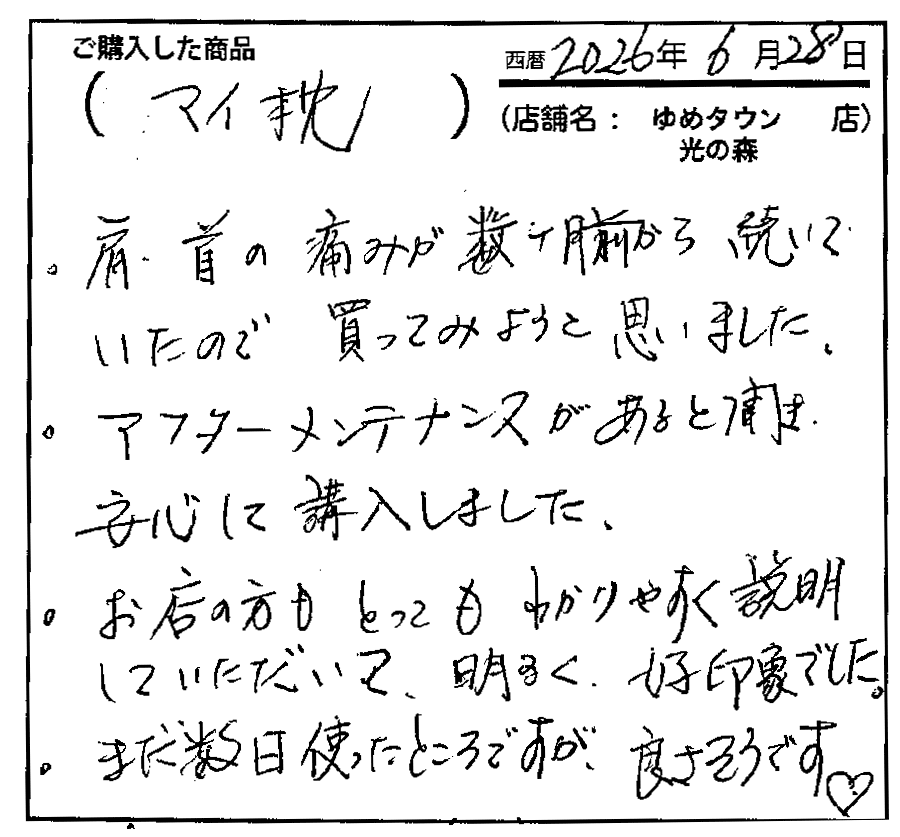 ご購入した商品
西暦 2026年 6月28日
( マイ枕 )
(店舗名： ゆめタウン 店)
光の森
。肩・首の痛みが数ヶ月前から続いて
いたので買ってみようと思いました。
。アフターメンテナンスがあると聞き、
安心して購入しました。
。お店の方もとってもわかりやすく説明
していただいて、明るく、好印象でした。
。まだ数日使ったところですが、良さそうです♡